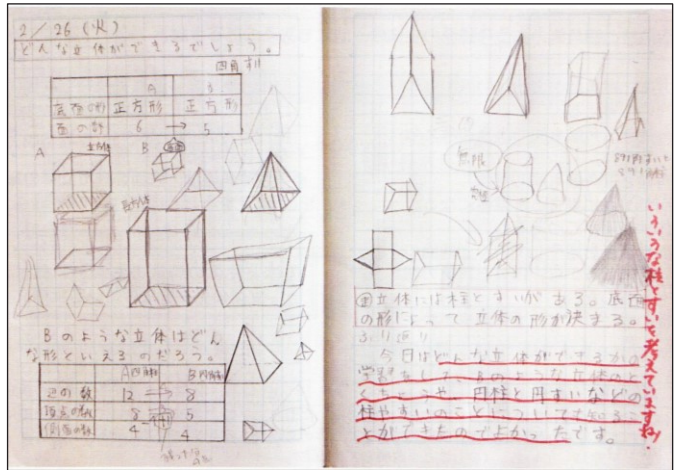 2/26(火)
どんな立体ができるでしょう。
四角すい
A B
底面の形 正方形 正方形
面の数 6 → 5
A 立方体 B
直方体
Bのような立体はどん
な形といえるのだろう。
A四角柱 B四角すい
辺の数 12 8
頂点の数 8 5
側面の数 4 4
無限
ま立体には柱とすいがある。底面
の形によって立体の形が決まる。
ふり返り
今日はどんな立体ができるかの
学習をして、Bのような立体のと
くちょうや、円柱と円すいなどの
柱やすいのことについても知るこ
とができたのでよかったです。
いろいろな柱とすいを考えていますね!